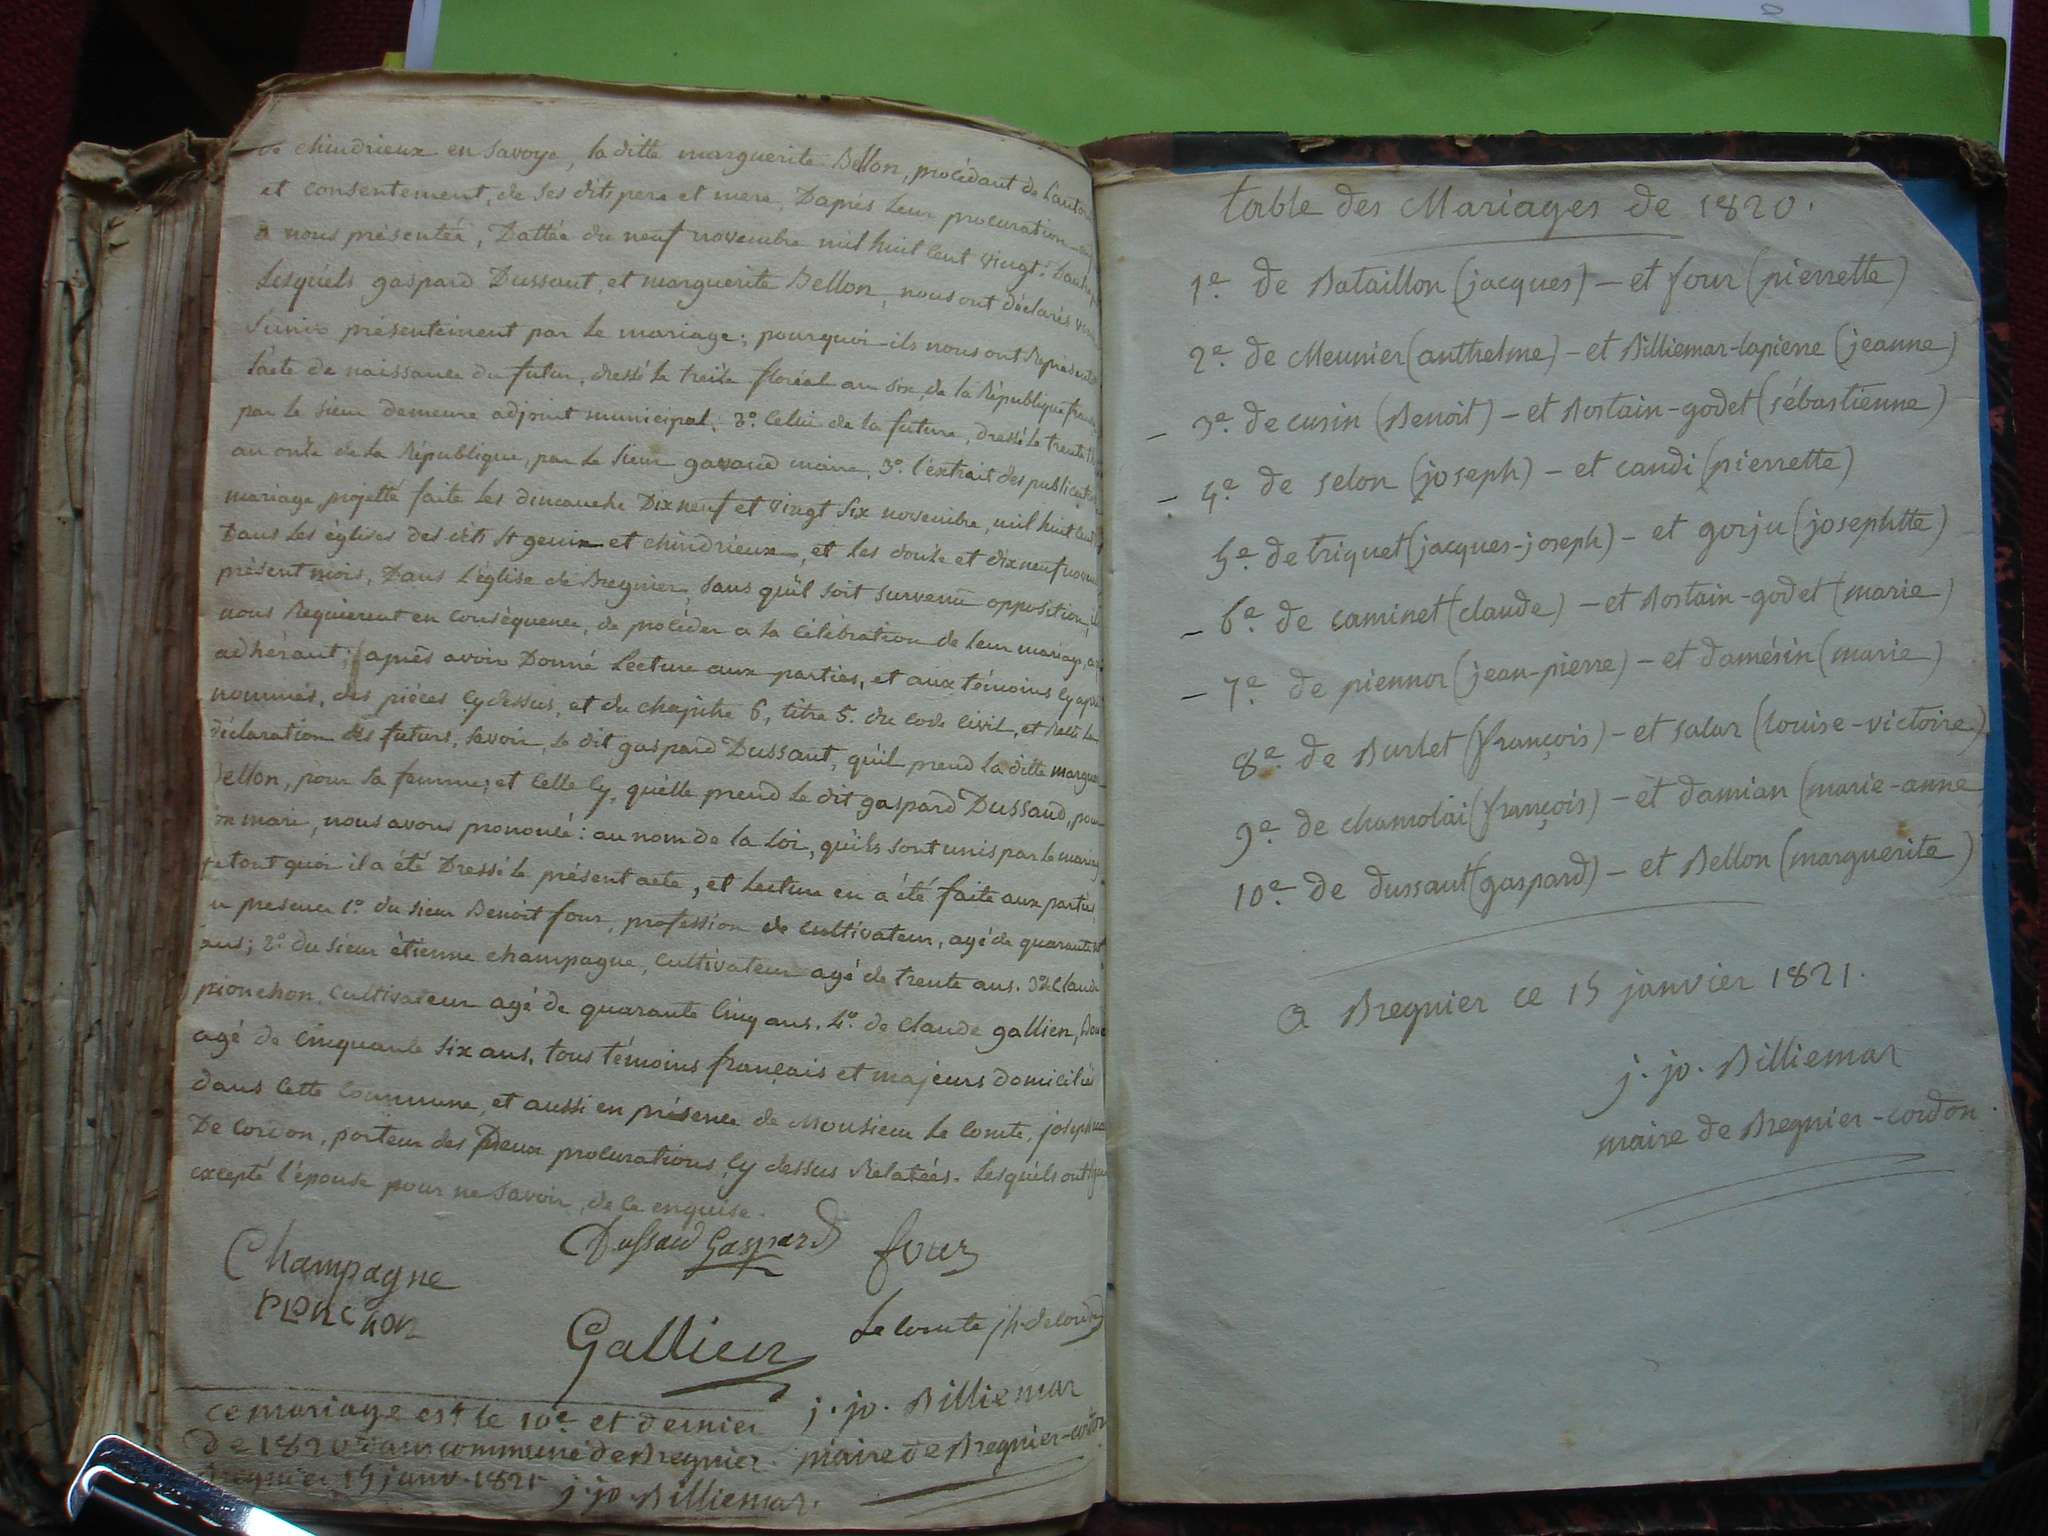 de chindrieux en Savoye, la ditte marguerite Bellon, procédant de l'autori
et consentement, de ses dits pere et mere, D'aprés Leur procuration
a nous présentée, Dattée du neuf novembre mil huit cent vingt.
Lesquéls gaspard Dussaut, et marguerite Bellon, nous ont déclarés
S'unir présentement par le mariage; pourquoi ils nous ont Représenté
l'acte de naissance du futur, dressé le treize floréal an six, de la République
par le sieur demeure adjoint municipal. 2º. Celui de la future, dressé le trente
an onze de la République, par le Sieur gavaud maire, 3º. l'extrait des publication
mariage projetté faite les dimanche Dix neuf et vingt Six novembre, mil huit cent
Dans Les églises des dits St genix et chindrieux, et les douze et dix neuf
présent mois, Dans L'église de Bregnier, Sans qu'il soit survenu opposition,
nous Requierent en conséquence, de procéder a la Célébration de leur mariage, a y
adhérant; aprés avoir Donné Lecture aux parties, et aux témoins cy aprés
nommés, des piéces cy dessus, et du chapitre 6, titre 5. du code Civil, et Reçu La
déclaration des futurs, Savoir, le dit gaspard Dussaut, qu'il prend la ditte margue
Bellon, pour sa femme, et Celle Cy, qu'elle prend le dit gaspard Dussaud, pour
son mari, nous avons prononcé: au nom de la Loi, qu'ils sont unis par le mariage
de tout quoi il a été Dressé le présent acte, et Lecture en a été faite aux parties
en presence 1º. du sieur Benoit four, profession de cultivateur, agé de quarante
ans; 2º. du sieur étienne champagne, Cultivateur agé de trente ans. 3º. Claude
pionchon, Cultivateur agé de quarante Cinq ans. 4º. de Claude gallien,
agé de Cinquante Six ans, tous témoins français et majeurs domiciliés
dans cette Commune, et aussi en présence de Monsieur Le Comte, joseph
De Cordon, porteur des Deux procurations Cy dessus Relatées. Lesquéls ont
excepté l'épouse pour ne Savoir, de ce enquise.
Champagne Dussaud Gaspard four
PIONCHON
Gallien Le Comte jh. de Cordon
j. jo. Billiemaz
maire de Bregnier-cordon
ce mariage est le 10e. et dernier
de 1820 dans commune de Bregnier.
Bregnier, 15 janv. 1821 j. jo. Billiemaz.
table des Mariages de 1820.
1e. de Bataillon (jacques) – et four (pierrette)
2e. de Meunier (anthelme) – et Billiemaz-lapierre (jeanne)
– 3e. de cusin (Benoit) – et Rostain-godet (sébastienne)
– 4e. de selon (joseph) – et candi (pierrette)
5e. de triquet (jacques-joseph) – et gorju (josephtte)
– 6e. de caminet (claude) – et Rostain-godet (marie)
– 7e. de piennoz (jean-pierre) – et damésin (marie)
8e. de Burlet (françois) – et salaz (louise-victoire)
9e. de chamolai (françois) – et damian (marie-anne
10e. de dussaut (gaspard) – et Bellon (marguerite)
a Bregnier ce 15 janvier 1821.
j. jo. Billiemaz
maire de Bregnier-cordon.